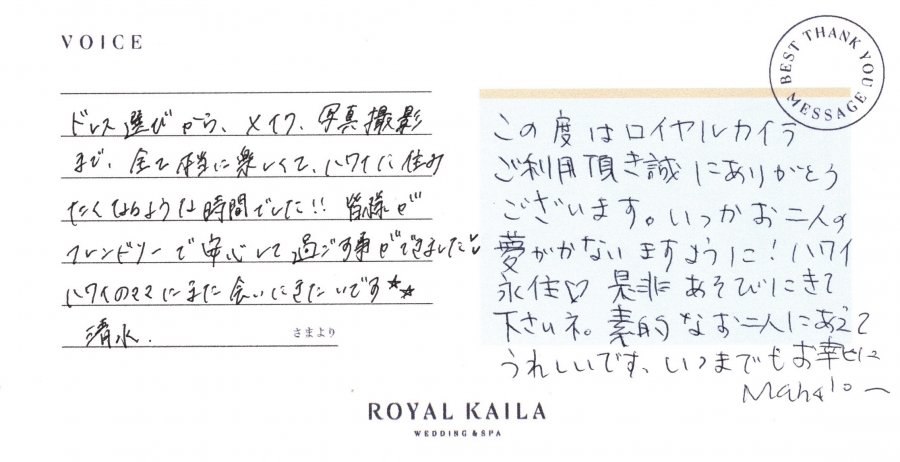 VOICE
BEST THANK YOU MESSAGE
ドレス選びから、メイク、写真撮影
まで、全て本当に楽しくて、ハワイに住み
たくなるような時間でした!! 皆様が
フレンドリーで安心して過ごす事ができました♡
ハワイのママにまた会いにきたいです★★
清水.
さまより
この度はロイヤルカイラ
ご利用頂き誠にありがとう
ございます。いつかお二人の
夢がかないますように!ハワイ
永住♡ 是非あそびにきて
下さいネ。素的なお二人にあえて
うれしいです、いつまでもお幸せに
Mahalo ー
ROYAL KAILA
WEDDING & SPA